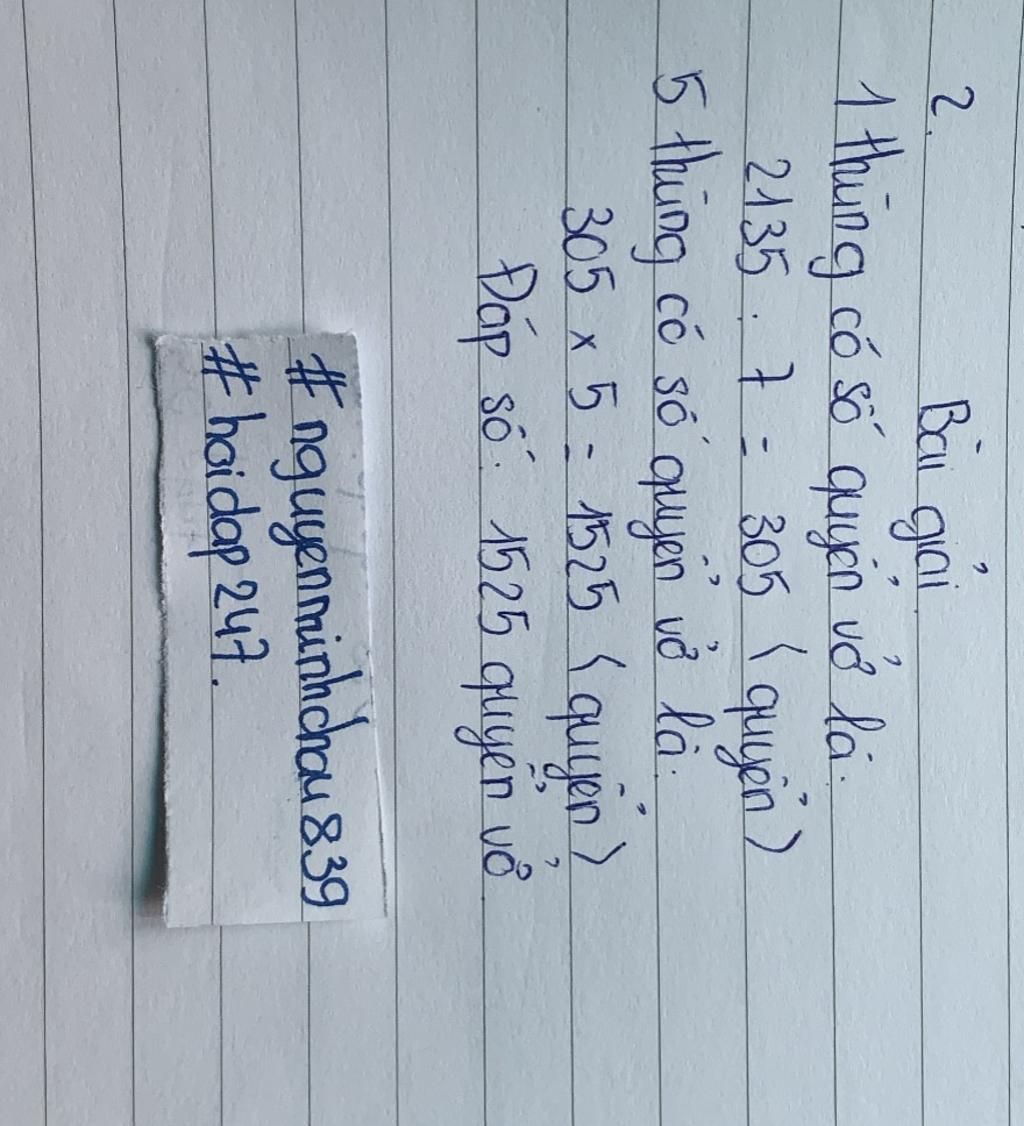 2.
Bài giải
1 thùng có số quyển vở là:
2135 : 7 = 305 (quyển)
5 thùng có số quyển vở là:
305 x 5 = 1525 (quyển)
Đáp số: 1525 quyển vở
#nguyenminhchau839
#hoidap247.